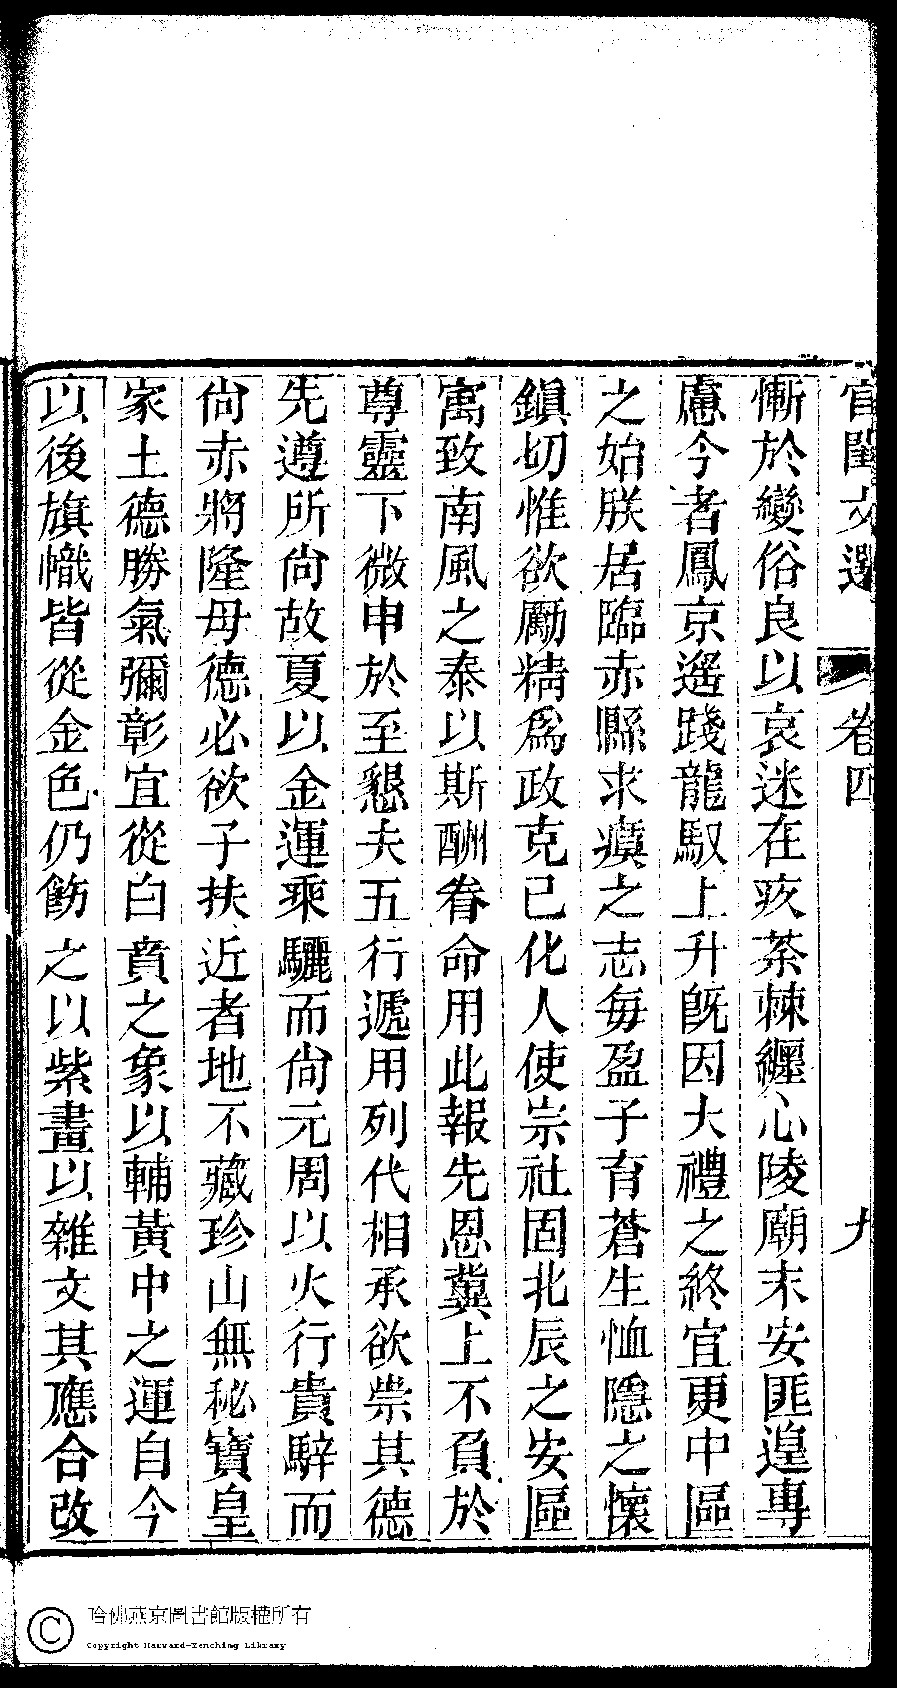 宮閨文選 卷四 九
慚於變俗良以哀迷在疚荼棘纏心陵廟未安匪遑專
慮今者鳳京遥踐龍馭上升旣因大禮之終宜更中區
之始朕居臨赤縣求瘼之志每盈子育蒼生恤隱之懷
鎮切惟欲勵精爲政克已化人使宗社固北辰之安區
寓致南風之泰以斯酬眷命用此報先恩冀上不負於
尊靈下微申於至懇夫五行遞用列代相承欲崇其德
先遵所尚故夏以金運乘驪而尚元周以火行貴騂而
尚赤將隆母德必欲子扶近者地不藏珍山無秘寶皇
家土德勝氣彌彰宜從白賁之象以輔黃中之運自今
以後旗幟皆從金色仍飾之以紫畫以雜文其應合改
哈佛燕京圖書館版權所有
Copyright Harvard-Yenching Library